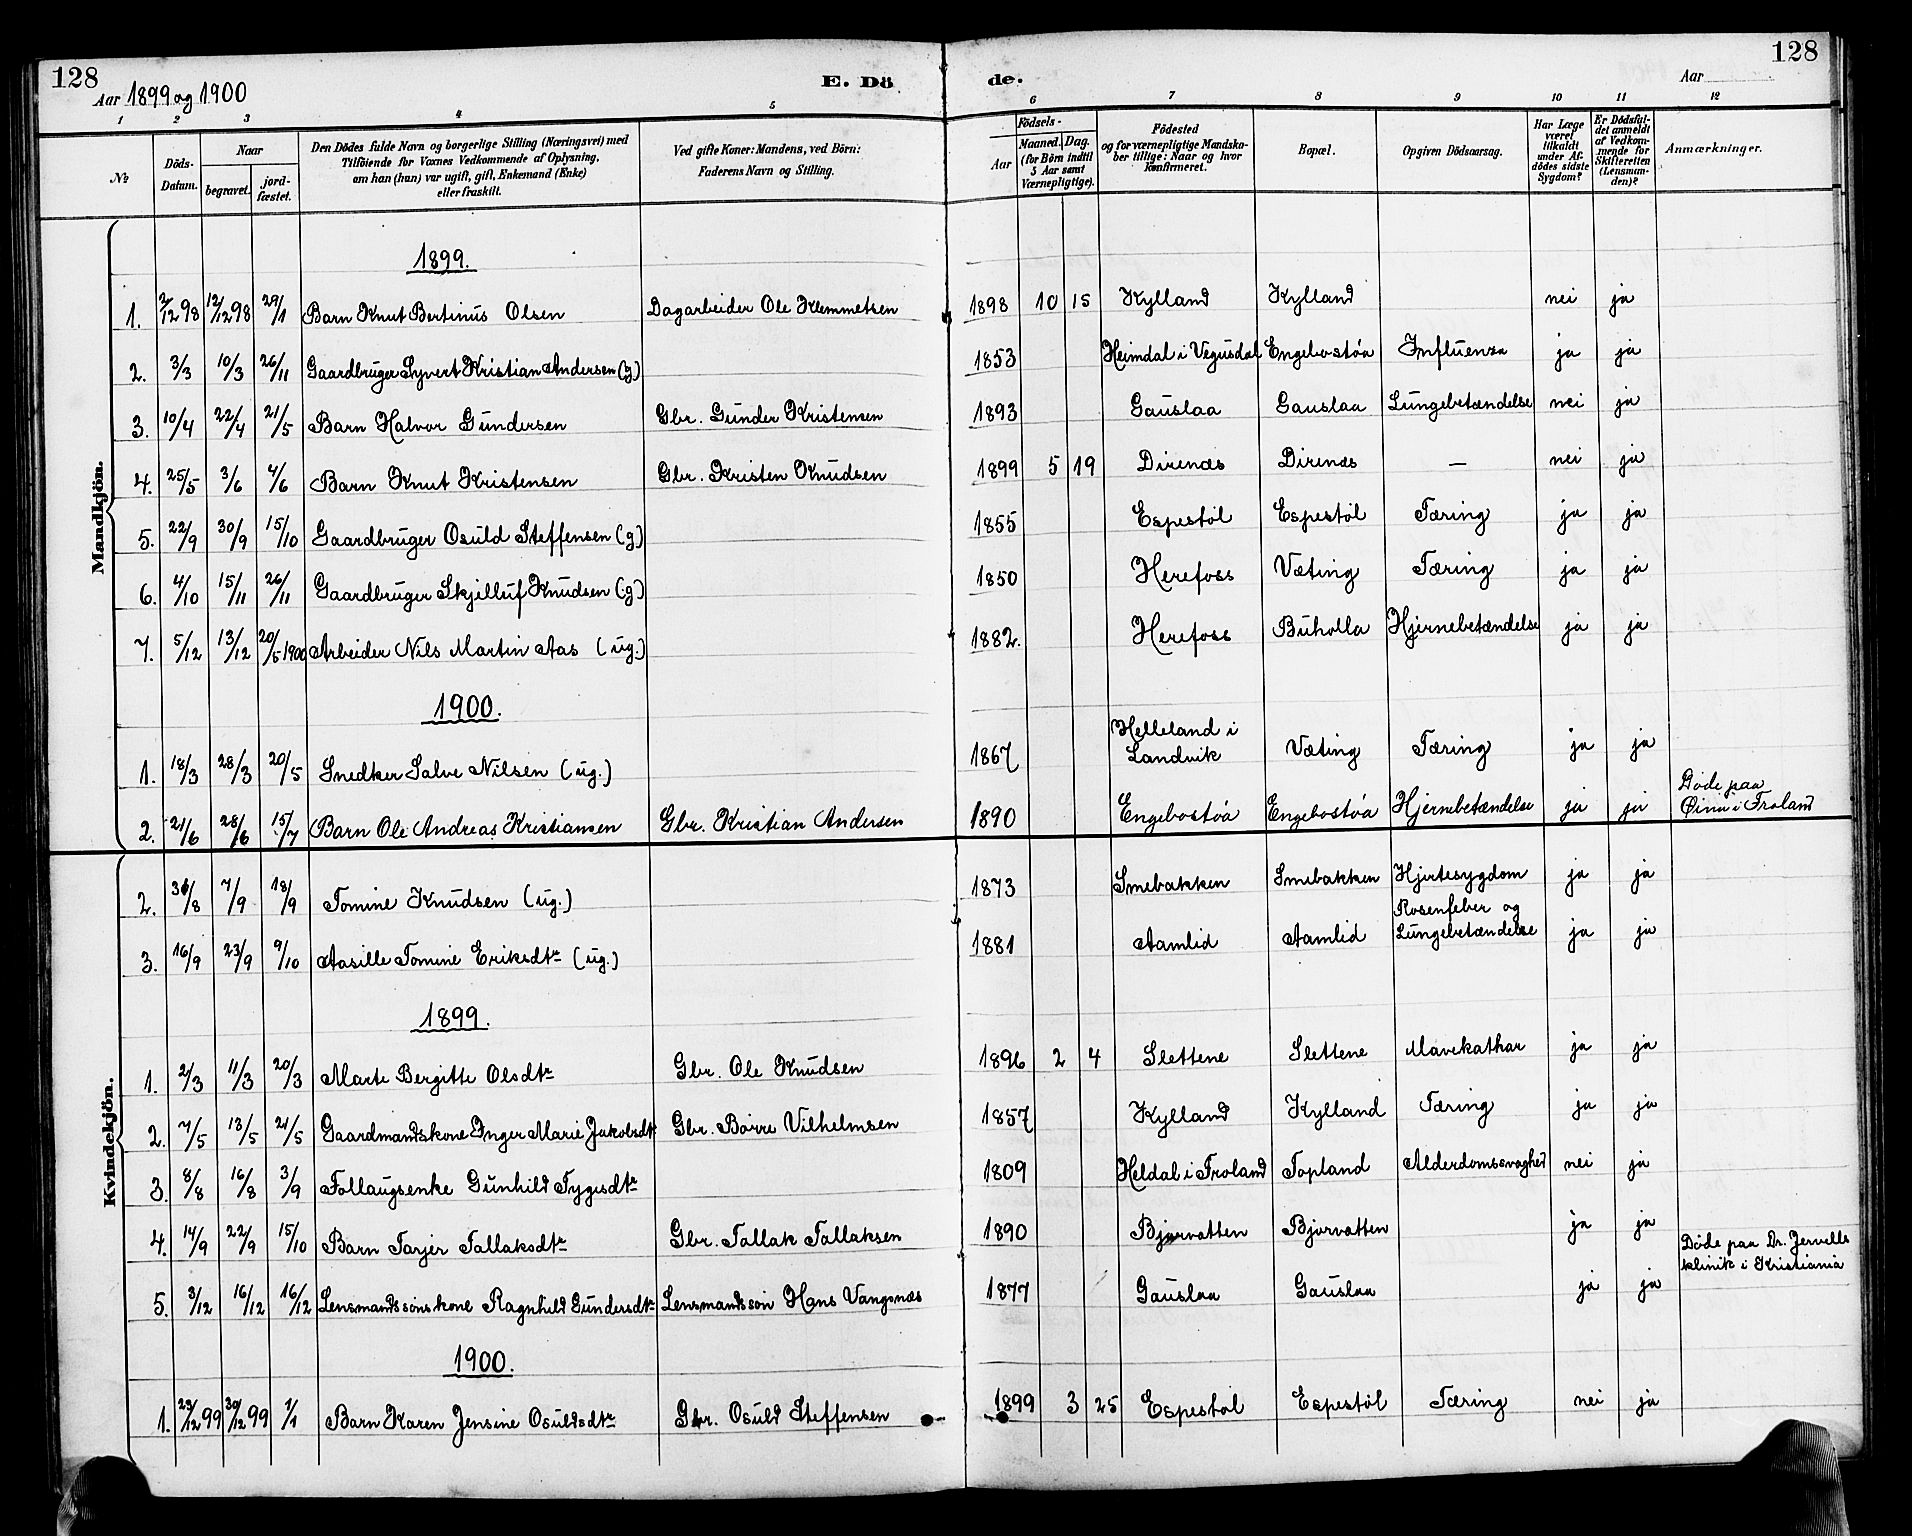 128 128
Aar 1899 og 1900 E. Dö de. Aar
1 2 3 4 5 6 7 8 9 10 11 12
№ Döds-Datum. Naar begravet. jord-fæstet. Den Dödes fulde Navn og borgerlige Stilling (Næringsvei) med Tilföiende for Voxnes Vedkommende af Oplysning, om han (hun) var ugift, gift, Enkemand (Enke) eller fraskilt. Ved gifte Koner: Mandens, ved Börn: Faderens Navn og Stilling. Födsels- Aar Maaned. Dag. (for Börn indtil 5 Aar samt Værnepligtige). Födested og for værnepligtige Mandskaber tillige: Naar og hvor Konfirmeret. Bopæl. Opgiven Dödsaarsag. Har Læge været tilkaldt under Afdödes sidste Sygdom? Er Dödsfaldet anmeldt af Vedkommende for Skifteretten (Lensmanden)? Anmærkninger.
Mandkjön.
1899.
1. 2/12 98 12/12 98 29/1 Barn Knut Bertinus Olsen Dagarbeider Ole Klemmetsen 1898 10 15 Kylland Kylland nei ja
2. 3/3 10/3 26/11 Gaardbruger Syvert Kristian Andersen (g) 1853 Heimdal i Vegusdal Engebostøa Influenza ja ja
3. 10/4 22/4 21/5 Barn Halvor Gundersen Gbr. Gunder Kristensen 1893 Gauslaa Gauslaa Lungebetændelse nei ja
4. 25/5 3/6 4/6 Barn Knut Kristensen Gbr. Kristen Knudsen 1899 5 19 Direnæs Direnæs — nei ja
5. 22/9 30/9 15/10 Gaardbruger Osuld Steffensen (g) 1855 Espestøl Espestøl Tæring ja ja
6. 4/10 15/11 26/11 Gaardbruger Skjelluf Knudsen (g) 1850 Herefoss Væting Tæring ja ja
7. 5/12 13/12 20/5 1900 Arbeider Nils Martin Aas (ug.) 1882. Herefoss Buholla Hjernebetændelse ja ja
1900.
1. 18/3 28/3 20/5 Snedker Salve Nilsen (ug.) 1867 Helleland i Landvik Væting Tæring ja ja
2. 21/6 28/6 15/7 Barn Ole Andreas Kristiansen Gbr. Kristian Andersen 1890 Engebostøa Engebostøa Hjernebetændelse ja ja Døde paa i Froland
Kvindekjön.
2. 31/8 7/9 18/9 Tomine Knudsen (ug.) 1873 Smebakken Smebakken Hjertesygdom ja ja
3. 16/9 23/9 9/10 Aasille Tomine Eriksdtr (ug.) 1881 Aamlid Aamlid Rosenfeber og Lungebetændelse ja ja
1899.
1. 2/3 11/3 20/3 Marte Bergitte Olsdtr Gbr. Ole Knudsen 1896 2 4 Slettene Slettene Mavekathar ja ja
2. 7/5 13/5 21/5 Gaardmandskone Inger Marie Jakobsdtr Gbr. Børre Vilhelmsen 1857 Kylland Kylland Tæring ja ja
3. 8/8 16/8 3/9 Føllaugsenke Gunhild Tygesdtr 1809 Heldal i Froland Topland Alderdomssvaghed nei ja
4. 14/9 22/9 15/10 Barn Tarjer Tallaksdtr Gbr. Tallak Tallaksen 1890 Bjorvatten Bjorvatten ja ja
5. 3/12 16/12 16/12 Lensmandssønskone Ragnhild Gundersdtr Lensmandssøn Hans Vangsnæs 1877 Gauslaa Gauslaa ja ja Døde paa Dr. Jervells klinik i Kristiania
1900.
1. 23/12 99 30/12 99 1/1 Barn Karen Jensine Osuldsdtr Gbr. Osuld Steffensen 1899 3 25 Espestøl Espestøl Tæring nei ja